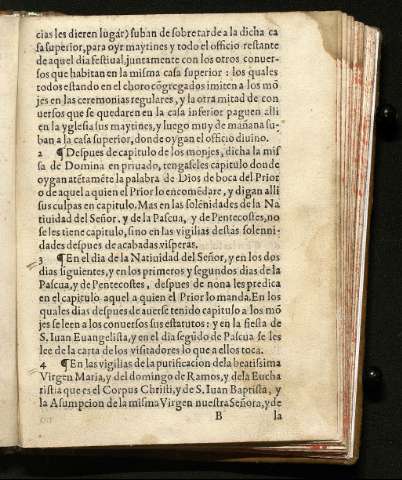 cias les dieren lugar) suban de sobretarde a la dicha ca
sa superior, para oyr maytines y todo el officio restante
de aquel dia festiual, juntamente con los otros conuer-
sos que habitan en la misma casa superior : los quales
todos estando en el choro cõgregados imiten a los mõ
jes en las ceremonias regulares, y la otra mitad de con
uersos que se quedaren en la casa inferior paguen alli
en la yglesia sus maytines, y luego muy de mañana su-
ban a la casa superior, donde oygan el officio diuino.
2 ¶ Despues de capitulo de los monjes, dicha la mis
sa de Domina en priuado, tengaseles capitulo donde
oygan atẽtamẽte la palabra de Dios de boca del Prior
o de aquel a quien el Prior lo encomẽdare, y digan alli
sus culpas en capitulo. Mas en las solẽnidades de la Na
tiuidad del Señor, y de la Pascua, y de Pentecostes, no
se les tiene capitulo, sino en las vigilias destas solenni-
dades despues de acabadas visperas.
3 ¶ En el dia de la Natiuidad del Señor, y en los dos
dias siguientes, y en los primeros y segundos dias de la
Pascua, y de Pentecostes, despues de nona les predica
en el capitulo aquel a quien el Prior lo manda. En los
quales dias despues de auerse tenido capitulo a los mõ
jes se leen a los conuersos sus estatutos : y en la fiesta de
S. Iuan Euangelista, y en el dia segũdo de Pascua se les
lee de la carta de los visitadores lo que a ellos toca.
4 ¶ En las vigilias de la purificacion de la beatissima
Virgen Maria, y del domingo de Ramos, y dela Eucha
ristia que es el Corpus Christi, y de S. Iuan Baptista, y
la Asumpcion de la misma Virgen nuestra Señora, y de
B la